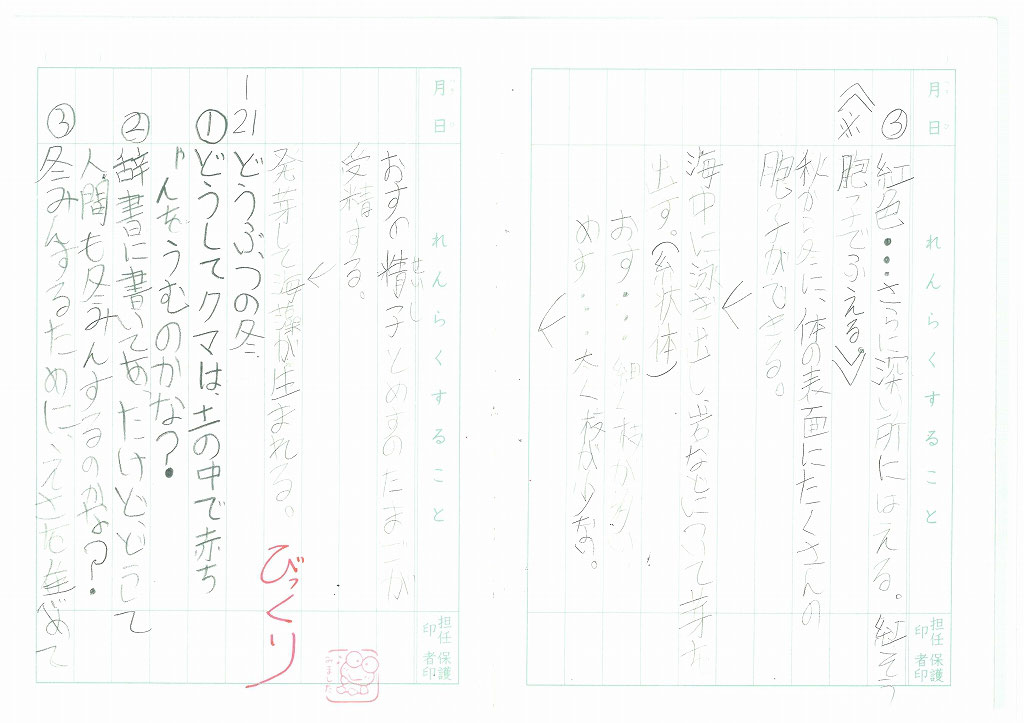 月日
れんらくすること
担任印
保護者印
③紅色…さらに深い所にはえる。紅そう
〈※胞子でふえる。〉
秋から冬に、体の表面にたくさんの
胞子ができる。
海中に泳ぎ出し岩などについて芽を
出す。(糸状体)
おす…細く枝が多い
めす…太く枝が少ない。
月日
れんらくすること
担任印
保護者印
おすの精子とめすのたまごが
せいし
受精する。
発芽して海藻が生まれる。
1
21 どうぶつの冬
①どうしてクマは、土の中で赤ち
ゃんをうむのかな?
②辞書に書いてあったけど、どうして
人間も冬みんするのかな?
③冬みんするために、えさを
びっくり